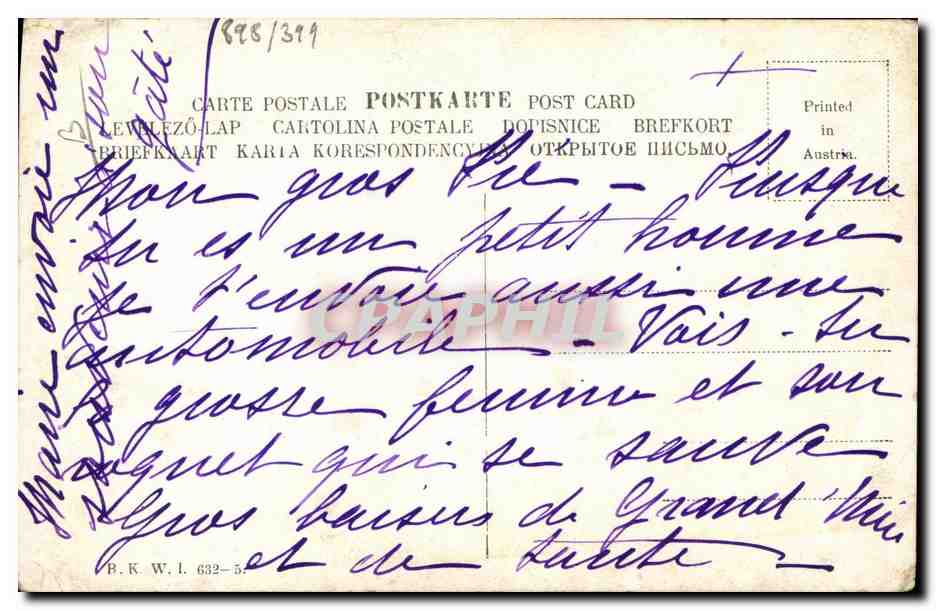 898/399
CARTE POSTALE POSTKARTE POST CARD
LEVELEZŐ-LAP CARTOLINA POSTALE DOPISNICE BREFKORT
BRIEFKAART KARTA KORESPONDENCYJNA ОТКРЫТОЕ ПИСЬМО.
Printed
in
Austria.
Mon gros Fié – Puisque
tu es un petit homme
je t'envoie aussi une
automobile – Vois-tu
la grosse femme et son
roquet qui se sauve
Gros baisers de Grand'Mère
et de tante –
Marie envoie un
à son
gâté
CPAPHIL
B. K. W. I. 632–5.